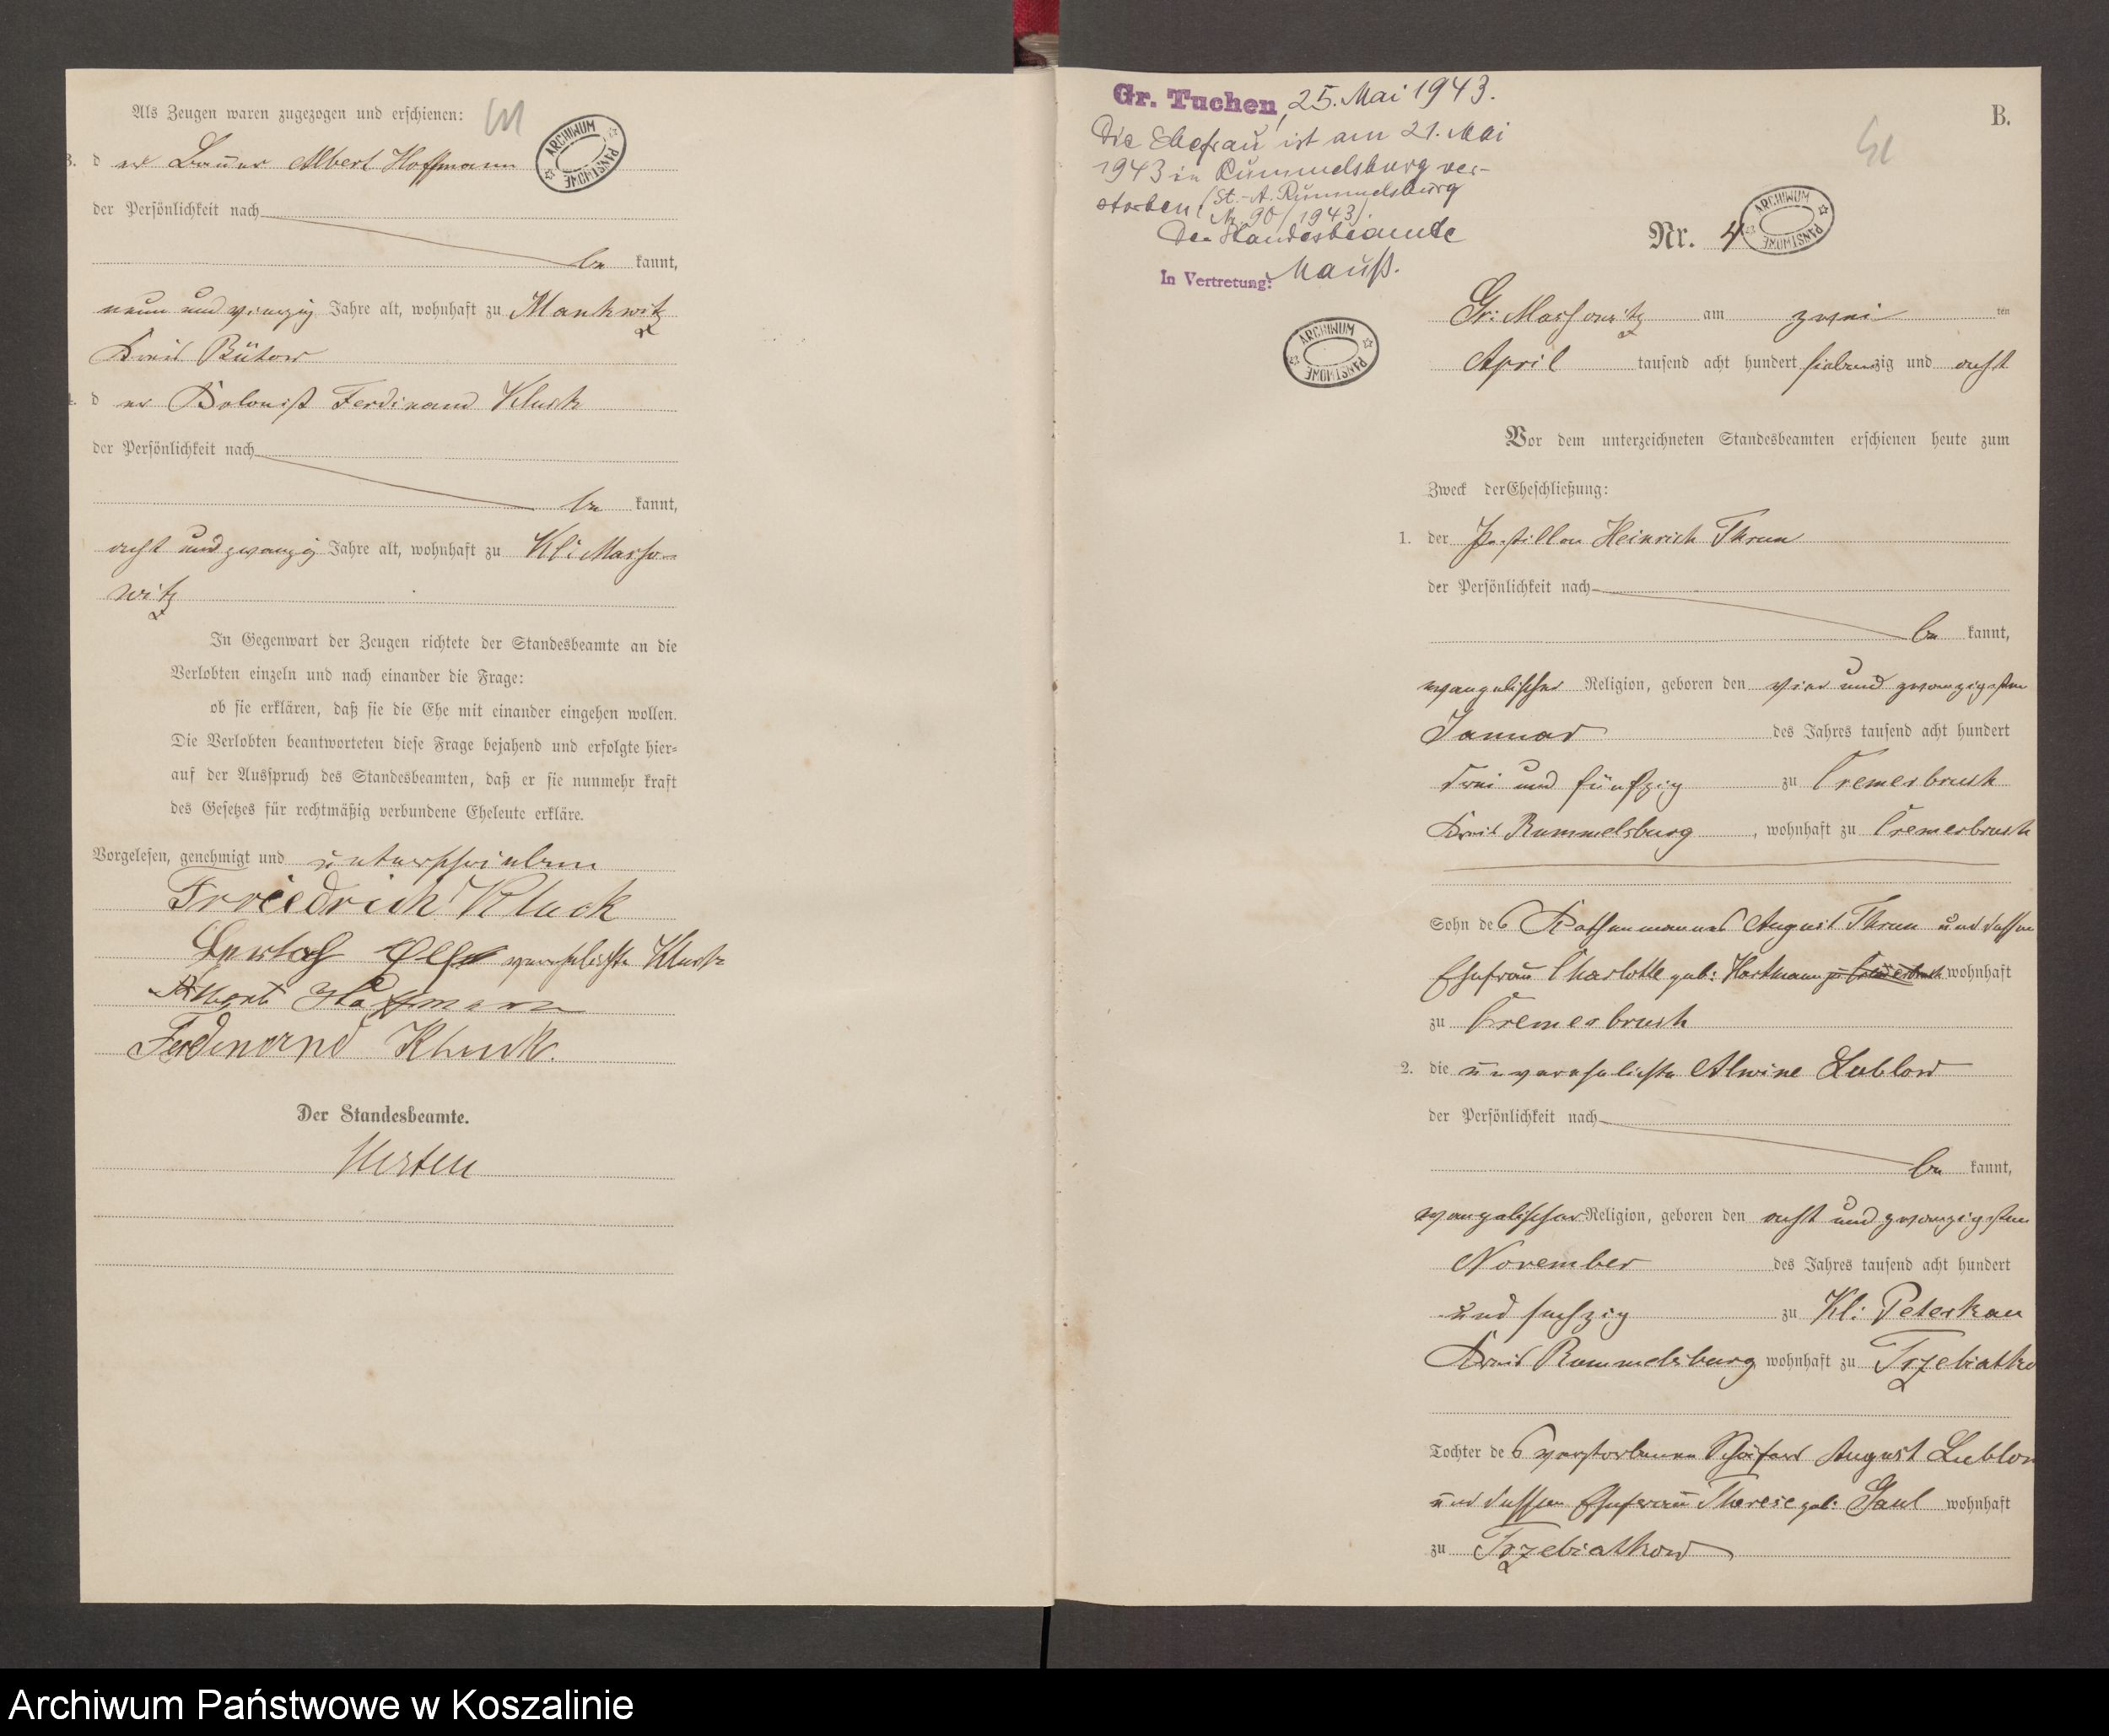 Als Zeugen waren zugezogen und erschienen:
3. d er Bauer Albert Hoffmann
der Persönlichkeit nach
be kannt,
neun und vierzig Jahre alt, wohnhaft zu Mankwitz
Kreis Bütow
4. d er Kolonist Ferdinand Kluck
der Persönlichkeit nach
be kannt,
acht und zwanzig Jahre alt, wohnhaft zu Kl: Masso-
witz
In Gegenwart der Zeugen richtete der Standesbeamte an die
Verlobten einzeln und nach einander die Frage:
ob sie erklären, daß sie die Ehe mit einander eingehen wollen.
Die Verlobten beantworteten diese Frage bejahend und erfolgte hier-
auf der Ausspruch des Standesbeamten, daß er sie nunmehr kraft
des Gesetzes für rechtmäßig verbundene Eheleute erkläre.
Vorgelesen, genehmigt und unterschrieben
Frriedrich Kluck
verehelichte Kluck
Albert Hoffmann
Ferdinand Kluck.
Der Standesbeamte.
ARCHIWUM PAŃSTWOWE
Gr. Tuchen, 25. Mai 1943.
Die Ehefrau ist am 21. Mai
1943 in Rummelsburg ver-
storben (St.-A. Rummelsburg
Nr. 90/1943).
Der Standesbeamte
In Vertretung: Mauß.
ARCHIWUM PAŃSTWOWE
B.
Nr. 4
ARCHIWUM PAŃSTWOWE
Gr: Massowitz am zwei ten
April tausend acht hundert siebenzig und acht
Vor dem unterzeichneten Standesbeamten erschienen heute zum
Zweck der Eheschließung:
1. der Postillon Heinrich Thrun
der Persönlichkeit nach
be kannt,
evangelischer Religion, geboren den vier und zwanzigsten
Januar des Jahres tausend acht hundert
drei und fünfzig zu Cremerbruch
Kreis Rummelsburg, wohnhaft zu Cremerbruch
Sohn des Kathenmannes August Thrun und dessen
Ehefrau Charlotte geb: Hartmann zu Cremerbruch wohnhaft
zu Cremerbruch
2. die unverehelichte Alwine Lublow
der Persönlichkeit nach
be kannt,
evangelischer Religion, geboren den acht und zwanzigsten
November des Jahres tausend acht hundert
und sechzig zu Kl: Peterkau
Kreis Rummelsburg wohnhaft zu Trzebiatko
Tochter des verstorbenen Schäfers August Lublow
und dessen Ehefrau Therese geb: Gaul wohnhaft
zu Trzebiatkow
Archiwum Państwowe w Koszalinie